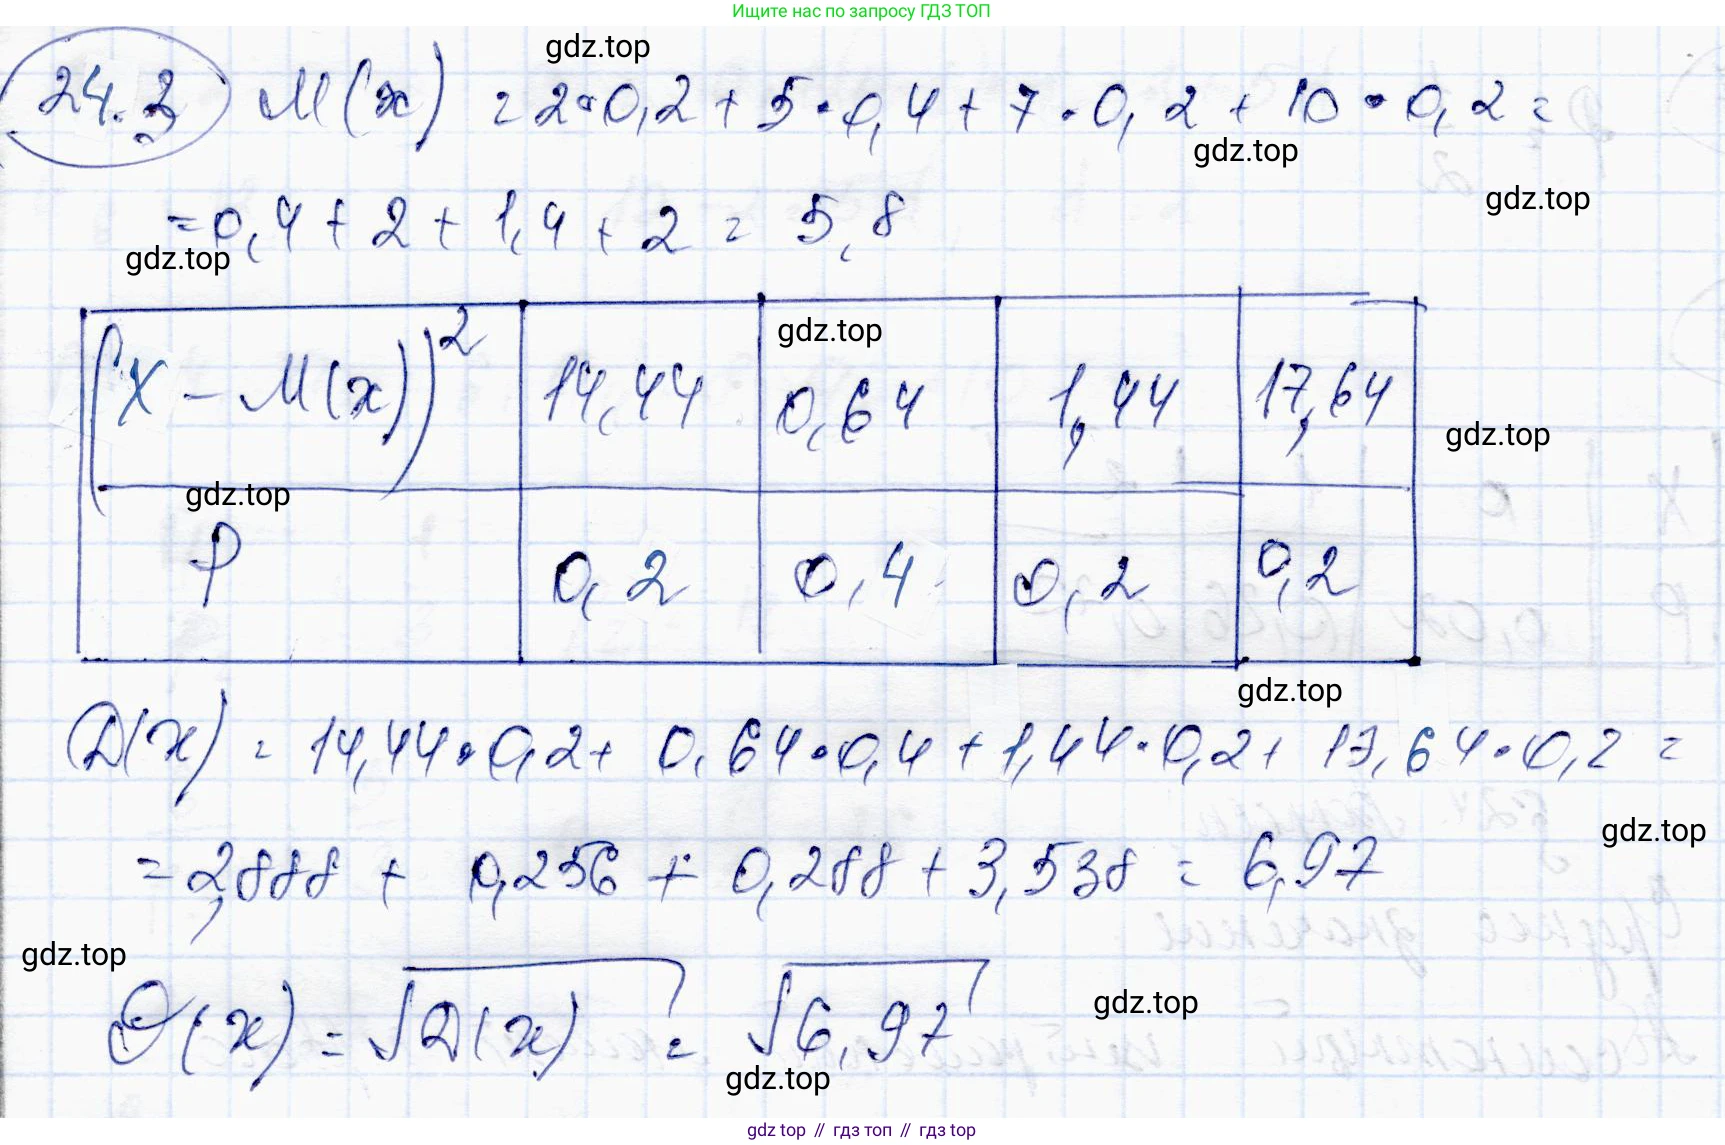 Ищите нас по запросу ГДЗ ТОП
gdz.top
24.2 M(x) = 2·0,2 + 5·0,4 + 7·0,2 + 10·0,2 =
gdz.top
gdz.top
= 0,4 + 2 + 1,4 + 2 = 5,8
gdz.top
gdz.top
(X - M(x))² 14,44 0,64 1,44 17,64
gdz.top
gdz.top
P 0,2 0,4 0,2 0,2
gdz.top
D(x) = 14,44·0,2 + 0,64·0,4 + 1,44·0,2 + 17,64·0,2 =
gdz.top
= 2,888 + 0,256 + 0,288 + 3,538 = 6,97
gdz.top
gdz.top
σ(x) = √D(x) = √6,97
gdz.top
gdz.top // гдз топ // гдз top